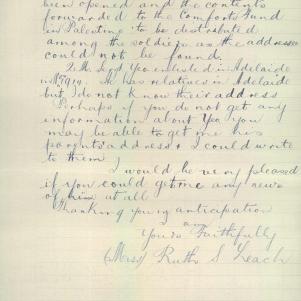 been opened and the contents
forwarded to the Comforts Fund
in Palestine to be destributed
among the soldiers as the addressee
could not be found.
enlisted in Adelaide
in relatives in Adelaide
but I do not know their address
Perhaps if you do not get any
information about Yeo you
may be able to get me his
parents address & I could write
to them
I would be very pleased
if you could get me any news
of him at all
Thanking you in anticipation
Yours Faithfully
(Miss) Ruth S. Leach